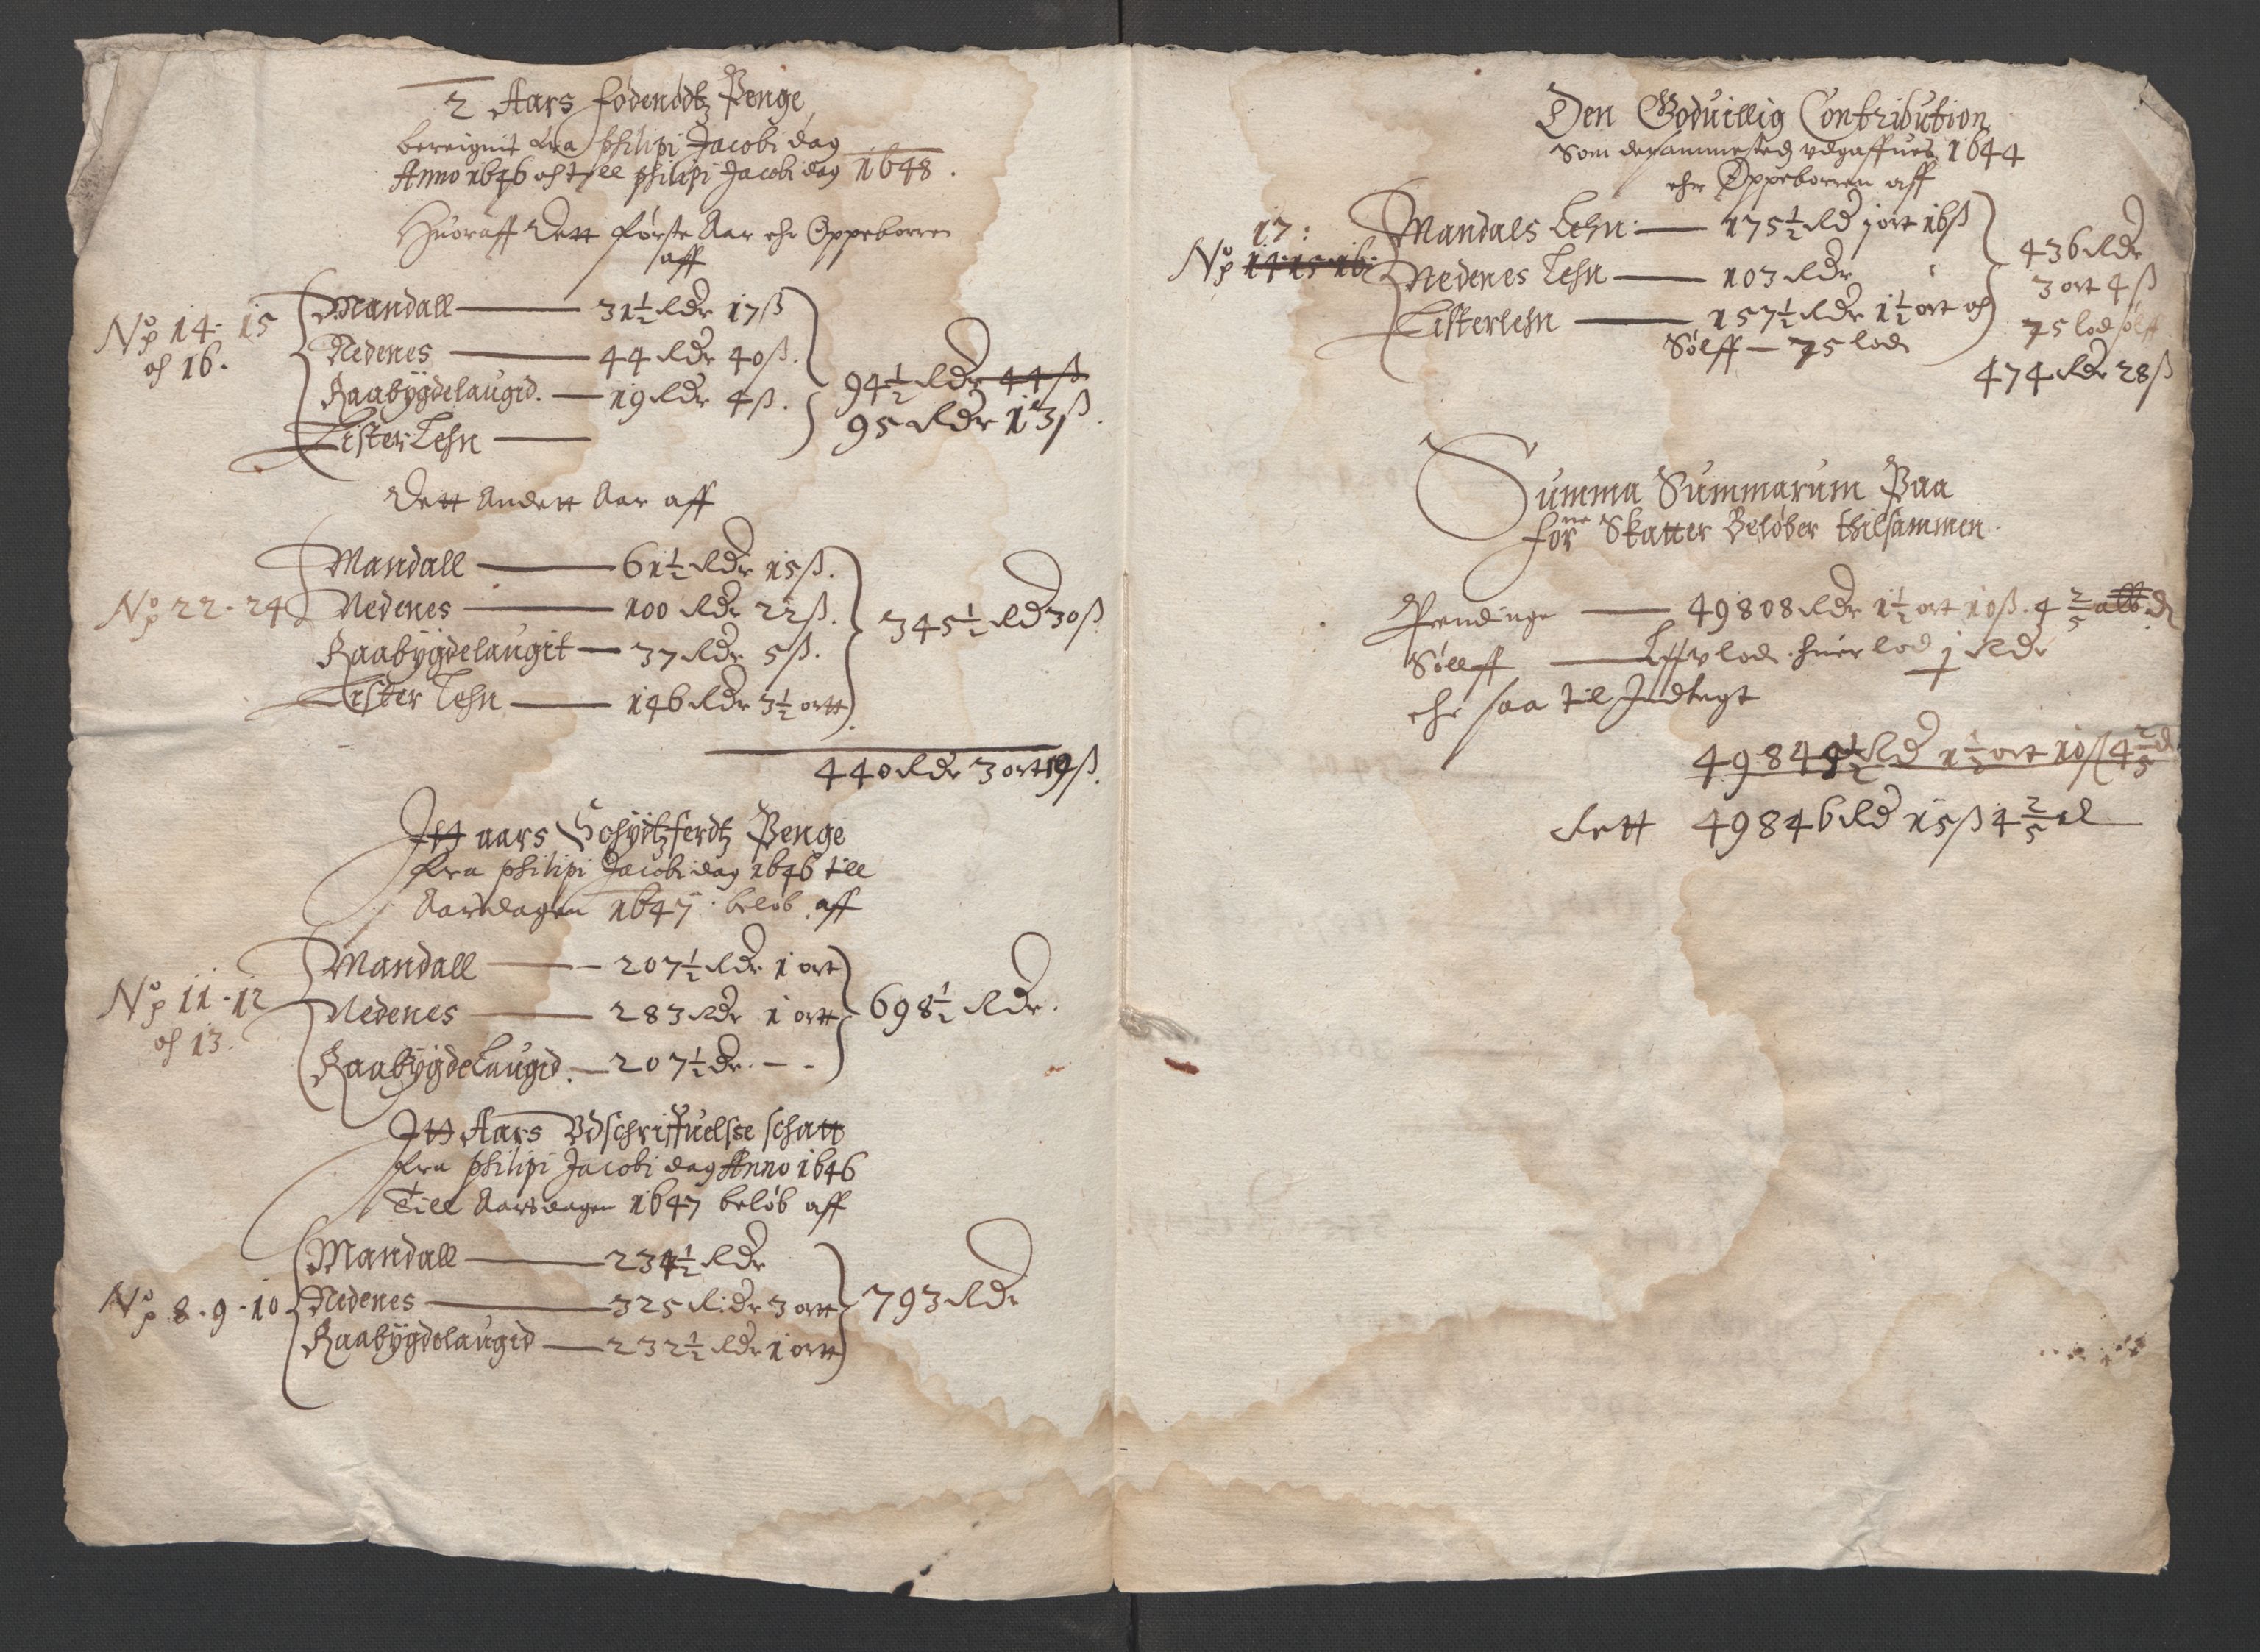 2 Aars fødenødtz Penge
bereignit fra philipi Jacobi dag
Anno 1646 och till philipi Jacobi dag 1648.
Huoraff Dett første Aar ehr Oppeborren
aff
No 14-15
och 16.
Mandall — 31½ Rdr 17ß
Nedenes — 44 Rdr 40ß.
Raabygdelaugid. — 19 Rdr 4ß.
Lister Lehn —
94½ Rdr 44ß
95 Rdr 13ß.
Dett Andett Aar aff
No 22-24
Mandall — 61½ Rdr 15ß.
Nedenes — 100 Rdr 22ß.
Raabygdelaugit — 37 Rdr 5ß.
Lister Lehn — 146 Rdr 3½ ortt
345½ Rd 30ß.
440 Rdr 3 ort 19ß.
Itt aars Schydtzferdtz Penge
fra philipi Jacobi dag 1646 till
Aarsdagen 1647 beløb aff
No 11-12
och 13.
Mandall — 207½ Rdr 1 ort
Nedenes — 283 Rdr 1 ortt
Raabygdelaugid. — 207½ dr. - -
698½ Rdr.
Itt Aars Vdschriffuelsse schatt
fra philipi Jacobi dag Anno 1646
Till Aarsdagen 1647 beløb aff
No 8-9-10
Mandall — 234½ Rdr
Nedenes — 325 Rdr 3 ortt
Raabygdelaugid — 232½ Rdr 1 ortt
793 Rdr
Den Goduillig Contribution
Som der sammested vdgaffues 1644
ehr Oppeborren aff
17:
No 14-15-16:
Mandals Lehn: — 175½ Rd j ort 16ß
Nedenes Lehn — 103 Rdr
Listerlehn — 157½ Rdr 1½ ort och
Sølff — 75 lod
436 Rdr
3 ort 4ß
75 lod sølff
474 Rdr 28ß
Summa Summarum Paa
forne Skatter Beløber thilsammen.
Pendinge — 49808 Rdr 1½ ort 10ß. 4 2/5 alb d
Sølff — Lxxv lod. huer lod ½ Rdr
ehr saa til Indtegt
49845½ Rd 1½ ort 10ß 4 2/5 d
Rett 49846 Rd 15ß 4 2/5 d